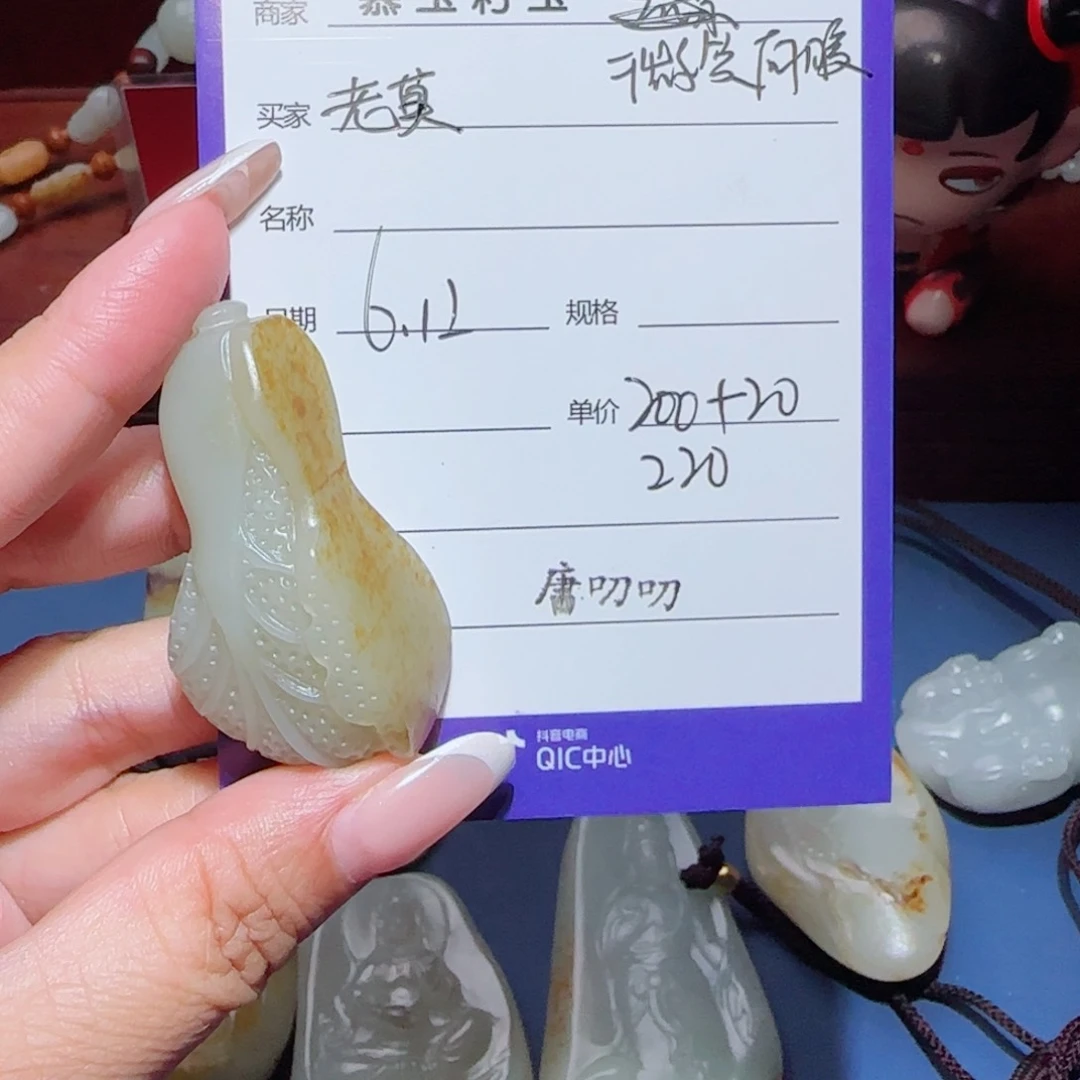 商家
买家 老莫
名称
日期 6.12 规格
单价 200+20
220
唐叨叨
抖音电商
QIC中心